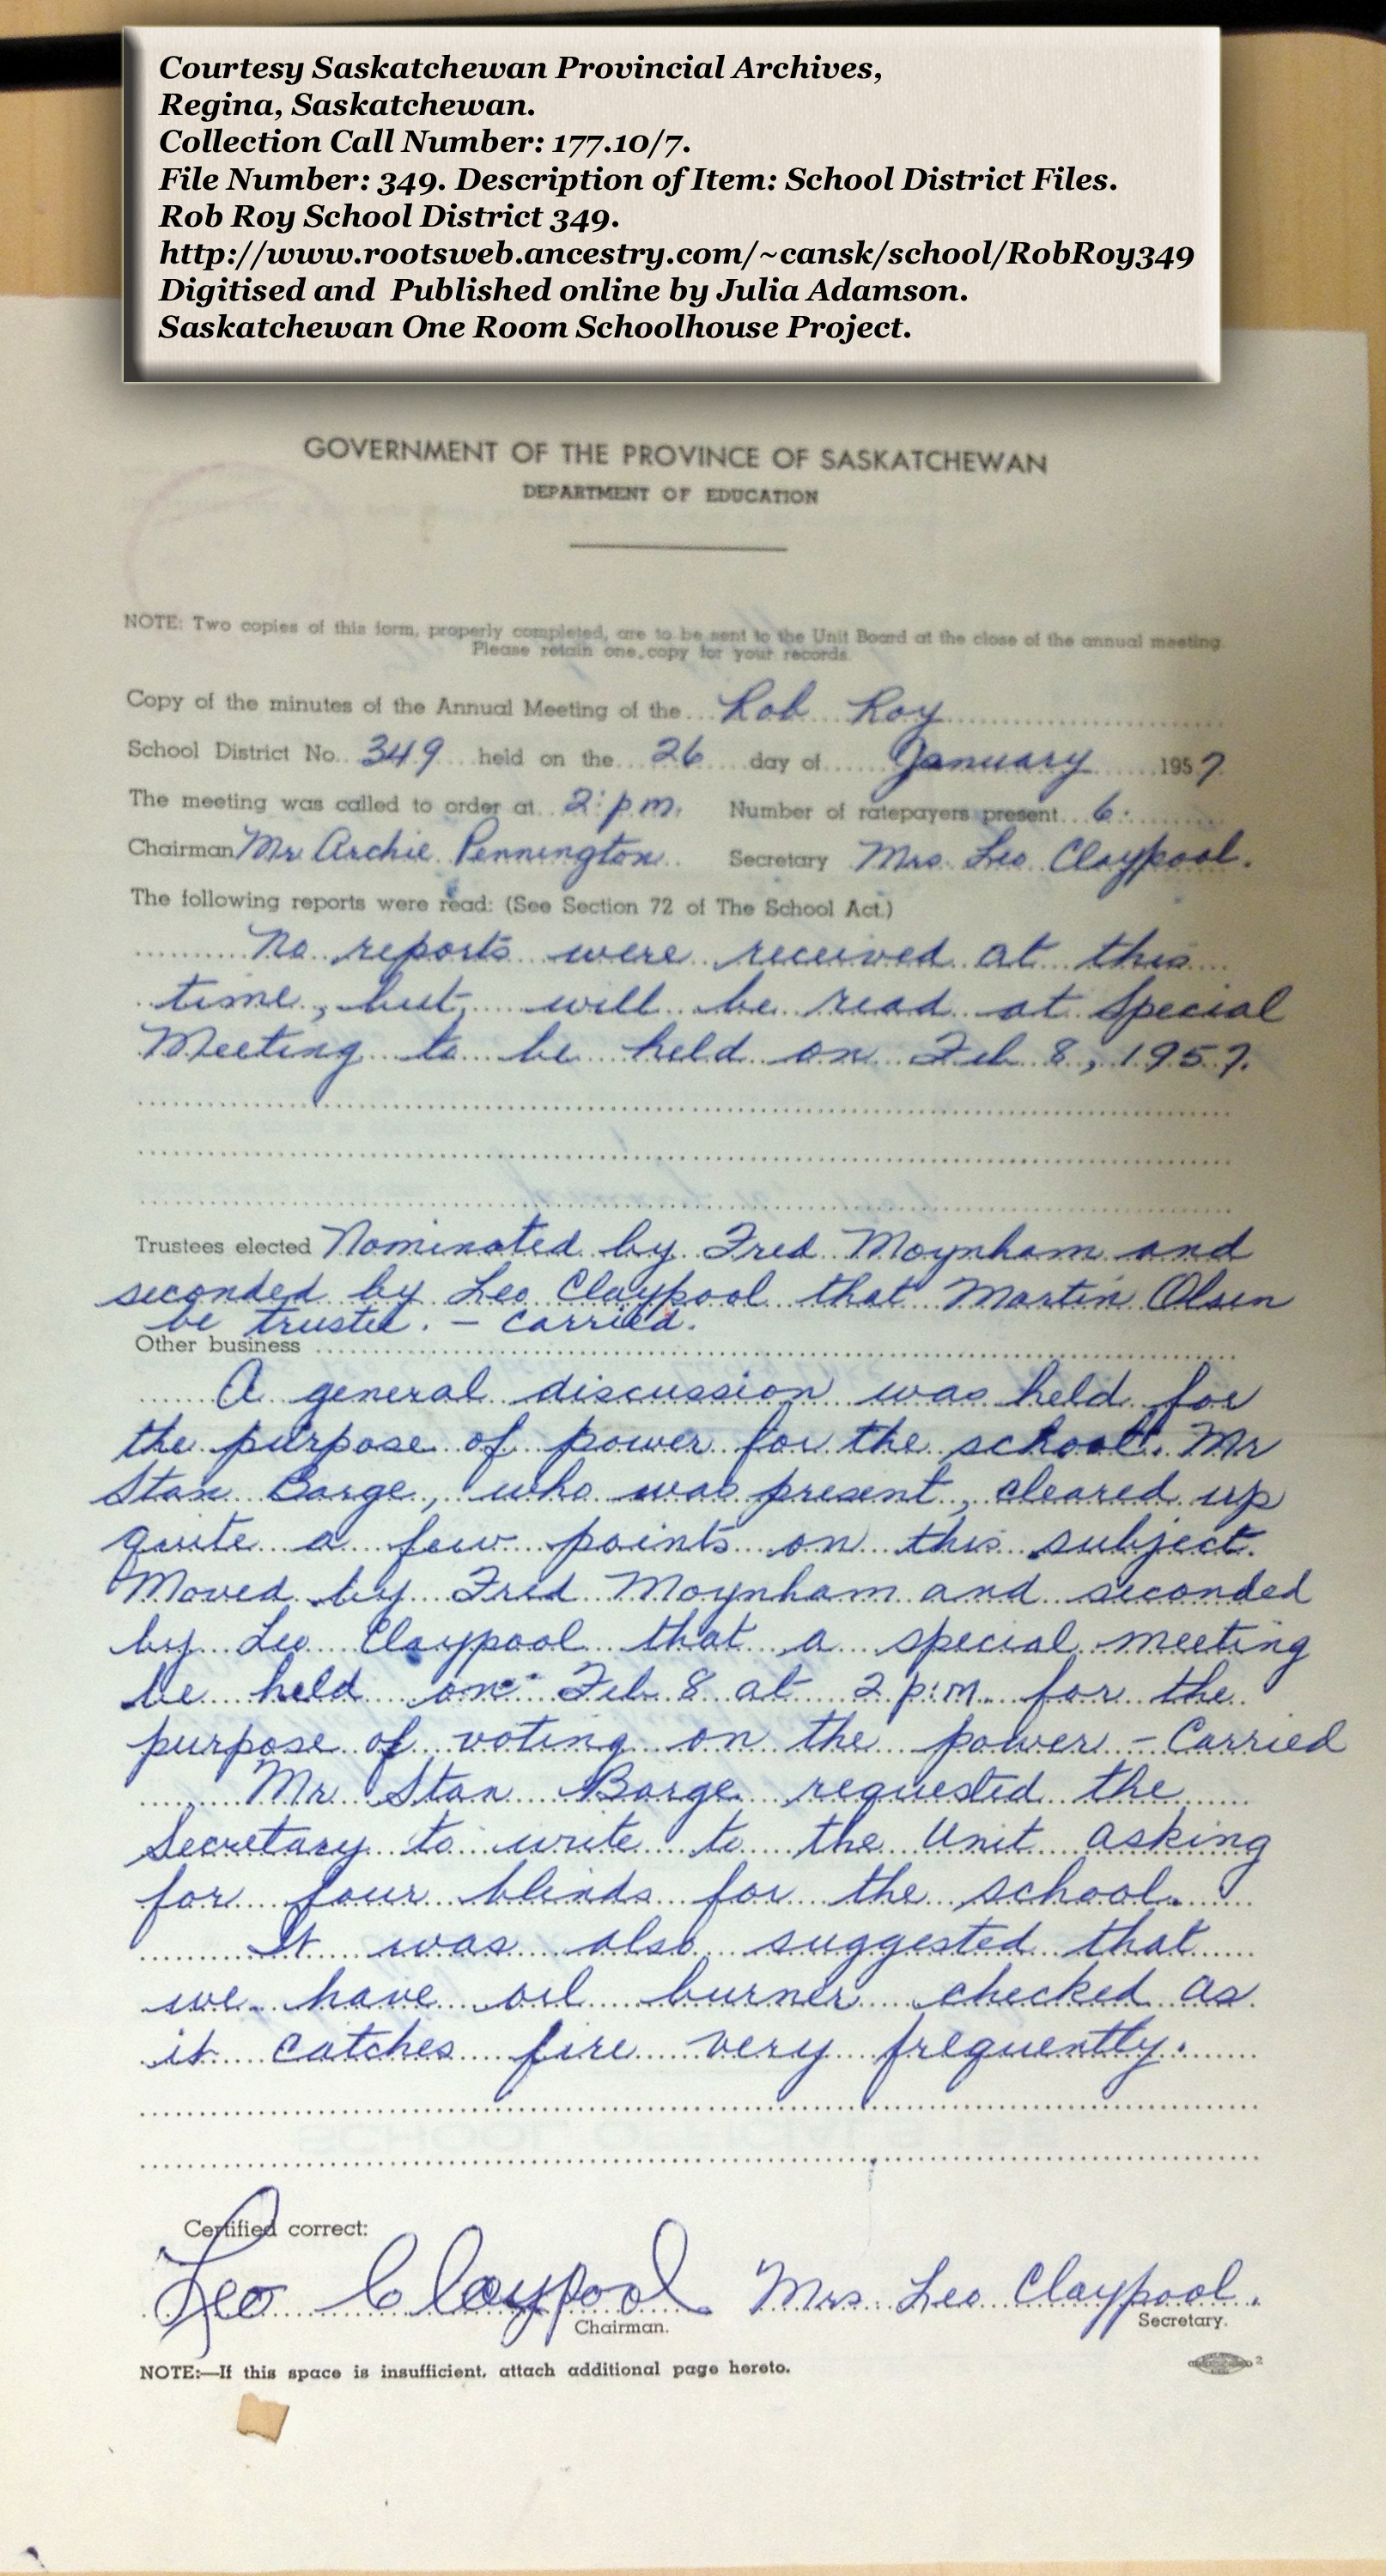 Courtesy Saskatchewan Provincial Archives,
Regina, Saskatchewan.
Collection Call Number: 177.10/7.
File Number: 349. Description of Item: School District Files.
Rob Roy School District 349.
http://www.rootsweb.ancestry.com/~cansk/school/RobRoy349
Digitised and Published online by Julia Adamson.
Saskatchewan One Room Schoolhouse Project.
GOVERNMENT OF THE PROVINCE OF SASKATCHEWAN
DEPARTMENT OF EDUCATION
NOTE: Two copies of this form, properly completed, are to be sent to the Unit Board at the close of the annual meeting.
Please retain one copy for your records.
Copy of the minutes of the Annual Meeting of the Rob Roy
School District No. 349 held on the 26 day of January 1957
The meeting was called to order at 2:p.m. Number of ratepayers present 6.
Chairman Mr Archie Pennington Secretary Mrs. Leo Claypool.
The following reports were read: (See Section 72 of The School Act.)
No reports were received at this
time, but, will be read at Special
Meeting to be held on Feb 8, 1957.
Trustees elected Nominated by Fred Moynham and
seconded by Leo Claypool that Martin Olsen
be trustee. - Carried.
Other business
A general discussion was held for
the purpose of power for the school. Mr
Stan Barge, who was present, cleared up
quite a few points on this subject.
Moved by Fred Moynham and seconded
by Leo Claypool that a special meeting
be held on Feb. 8 at 2 p.m. for the
purpose of voting on the power - Carried
Mr Stan Barge requested the
Secretary to write to the Unit asking
for four blinds for the school.
It was also suggested that
we have oil burner checked as
it catches fire very frequently.
Certified correct:
Leo Claypool Mrs. Leo Claypool.
Chairman. Secretary.
NOTE:—If this space is insufficient, attach additional page hereto.
2